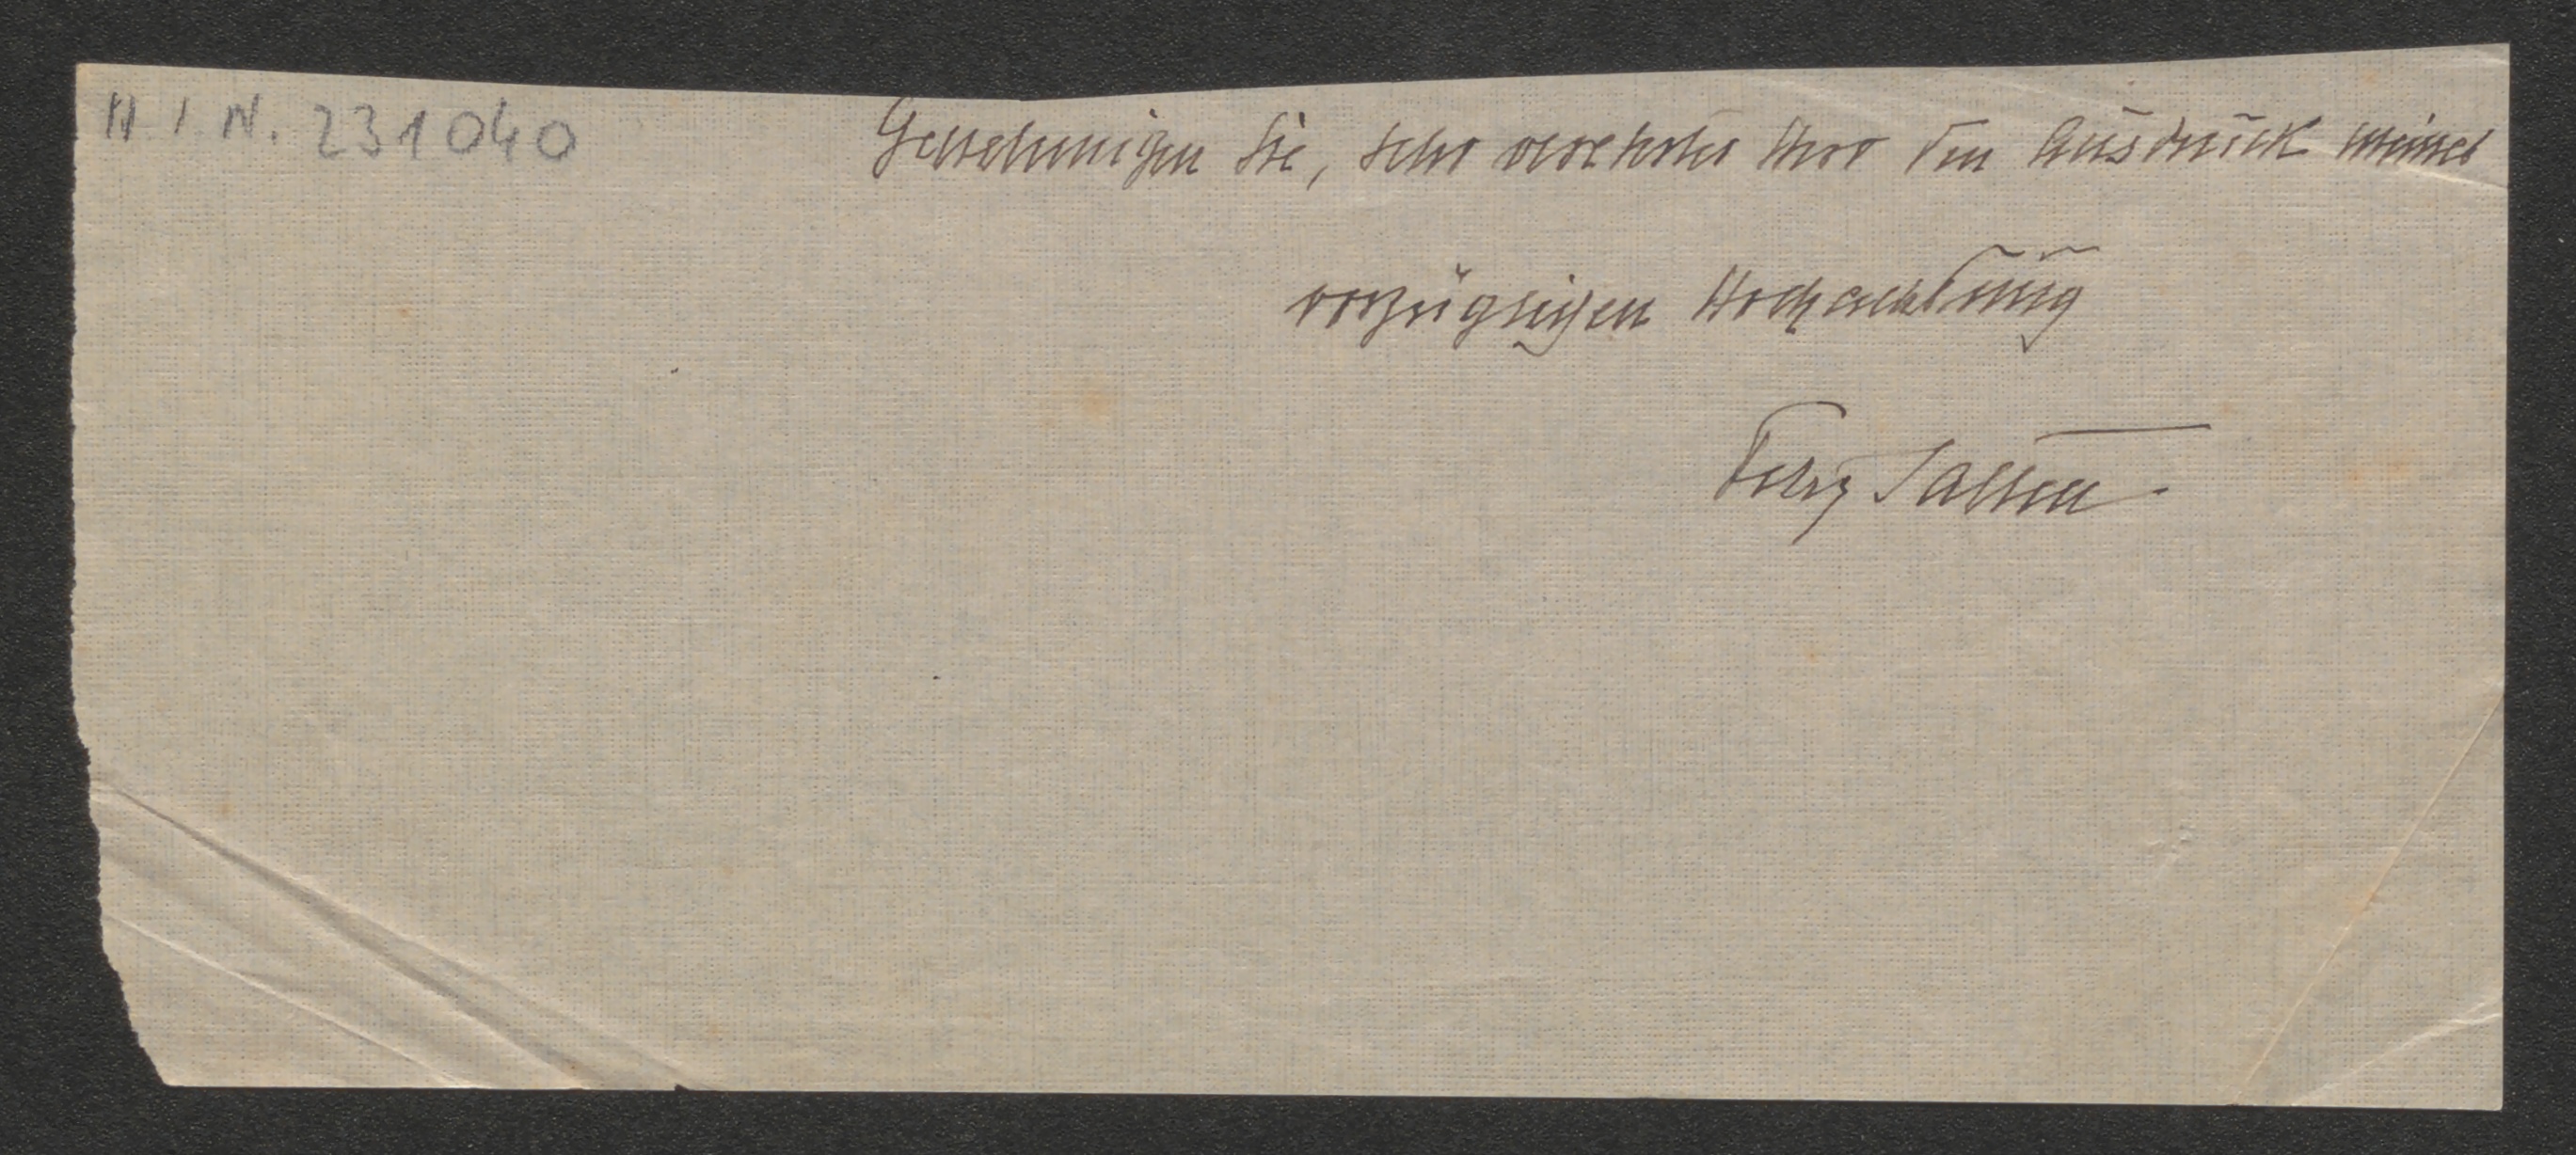 H. I. N. 231040
Genehmigen Sie, sehr verehrter Herr den Ausdruck meiner
vorzüglichen Hochachtung
Felix Salten